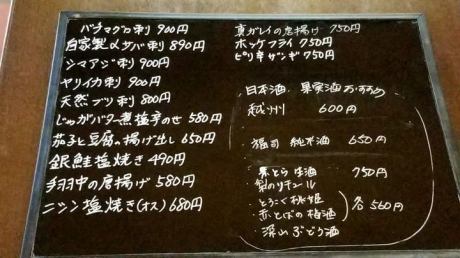 バチマグロ刺 900円
自家製〆サバ刺 890円
シマアジ刺 900円
ヤリイカ刺 900円
天然ブリ刺 800円
じゃがバター煮塩辛のせ 580円
茄子と豆腐の揚げ出し 650円
銀鮭塩焼き 490円
手羽中の唐揚げ 580円
ニシン塩焼き(オス) 680円
真ガレイの唐揚げ 750円
ホッケフライ 750円
ピリ辛ザンギ 750円
日本酒 果実酒 おすすめ
越州 600円
福司 純米酒 650円
とら 生酒 750円
・梨のリキュール
・とろこく桃姫
・赤とんぼの梅酒
・深山ぶどう酒
各560円